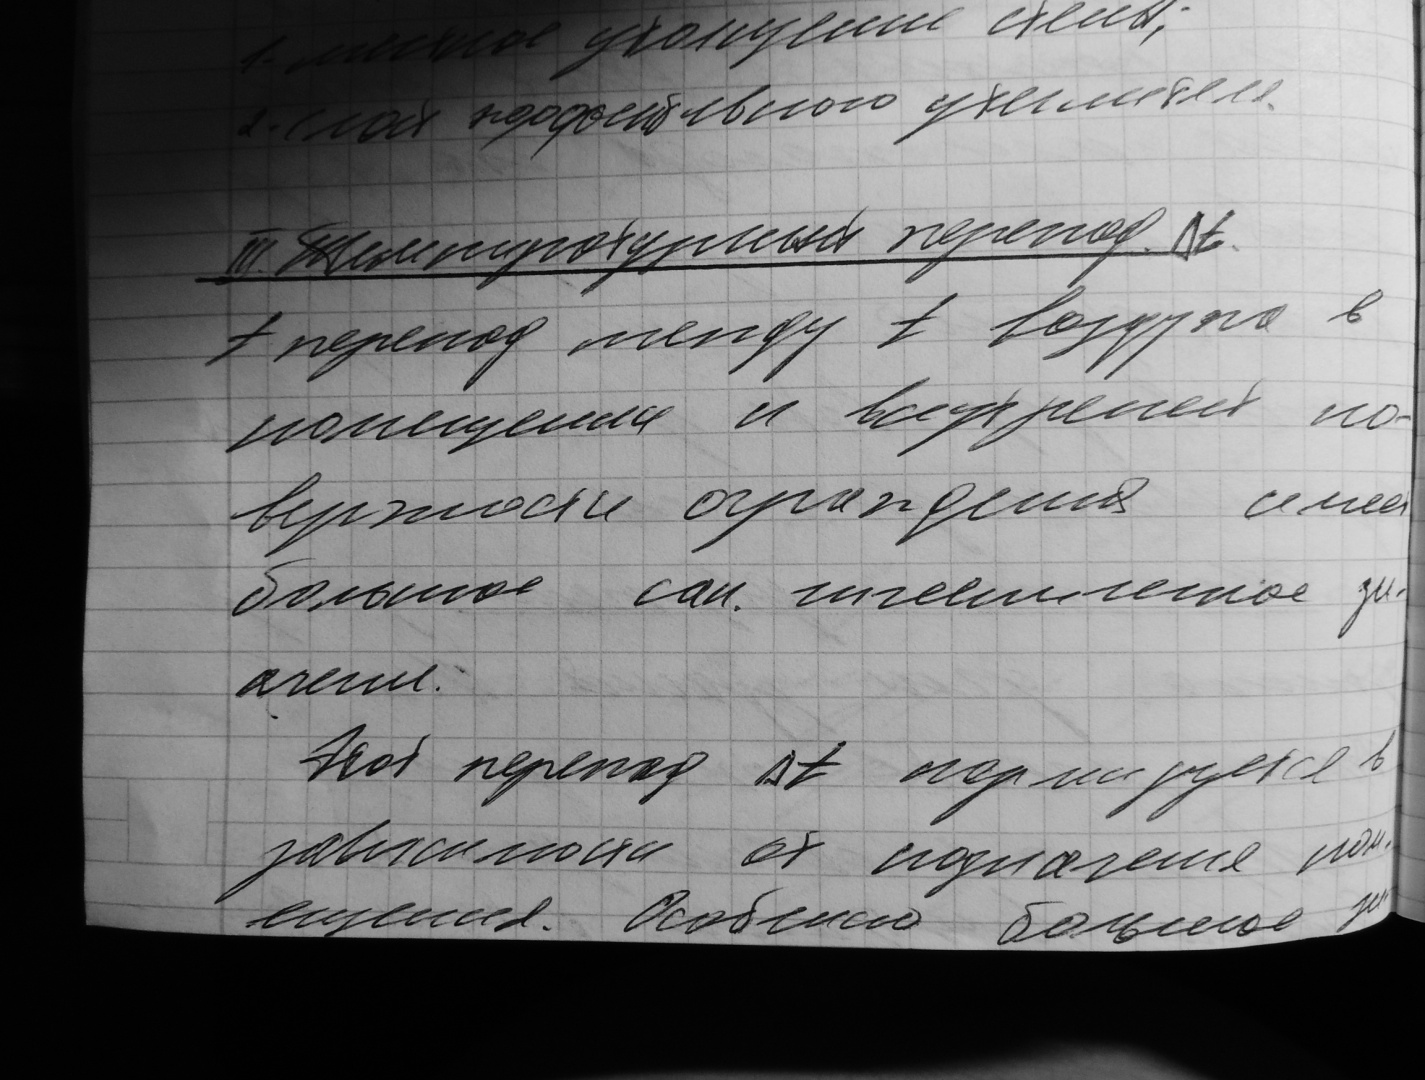 1. местное утолщение стены;
2. слой эффективного утеплителя.
III. Температурный перепад Δt.
t перепад между t воздуха в
помещении и внутреней по-
верхности ограждения имеет
большое сан. гигиеническое зн-
ачение.
Этот перепад Δt нормируется в
зависимости от назначения пом-
ещения. Особенно большое зн